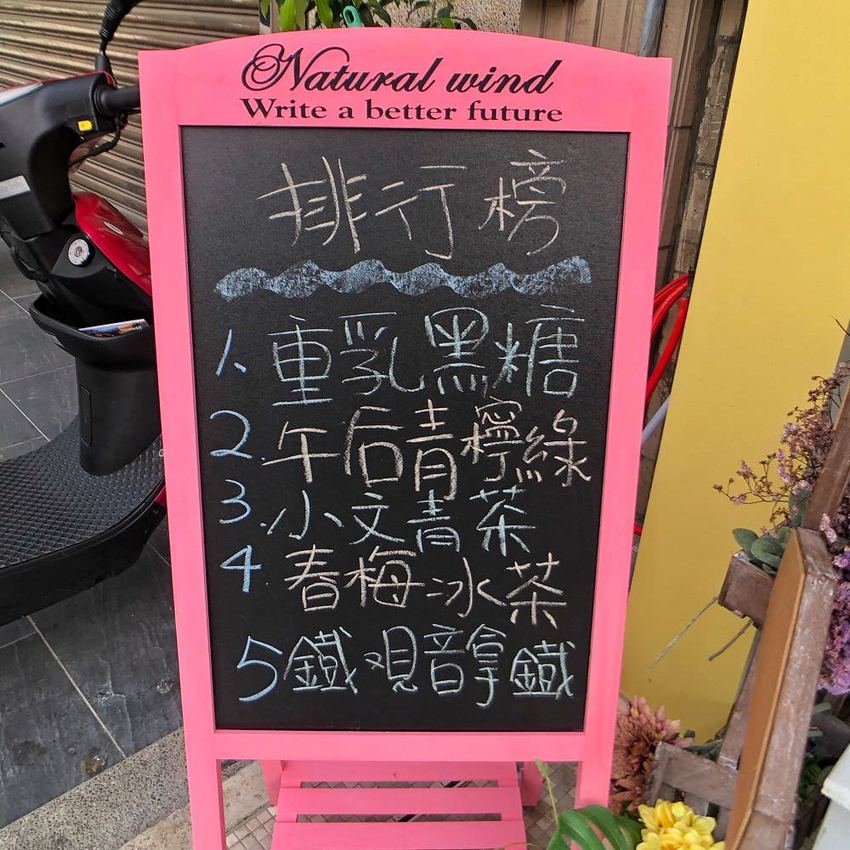 Natural wind
Write a better future
排行榜
1、重乳黑糖
2.午后青檸綠
3.小文青茶
4 春梅冰茶
5鐵观音拿鐵